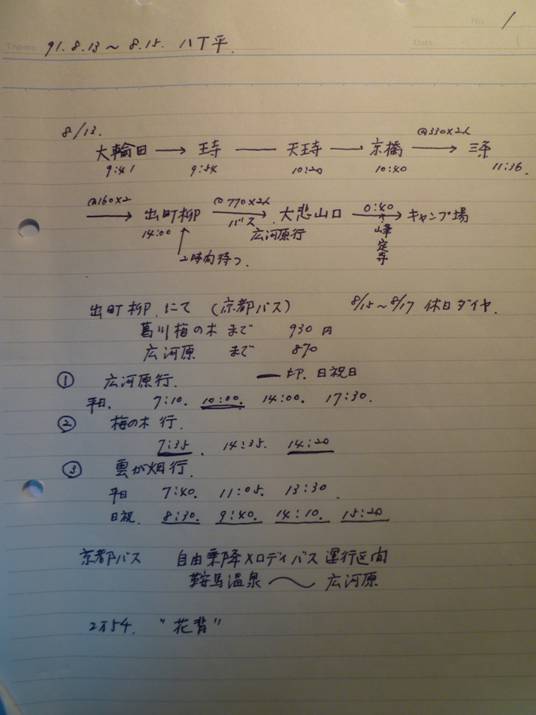 No. 1
Date
91.8.13～8.15. 八丁平.
8/13.
大輪田 → 王寺 ― 天王寺 ― 京橋 @330×2人 → 三条
9:41 9:54 10:20 10:40 11:36
@160×2 → 出町柳 @770×2人 バス → 大悲山口 0:40 → キャンプ場
14:00 広河原行 峰定寺
2時間待つ.
出町柳.にて (京都バス) 8/15～8/17 休日ダイヤ.
葛川梅の木まで 930円
広河原 まで 870
① 広河原行. ― 印.日祝日
平日. 7:10. 10:00. 14:00. 17:30.
② 梅の木行.
7:35. 14:35. 14:20
③ 雲が畑行.
平日 7:40. 11:05. 13:30.
日祝. 8:30. 9:40. 14:10. 15:20
京都バス 自由乗降メロディバス運行区間
鞍馬温泉 ～ 広河原
2万5千. "花背"